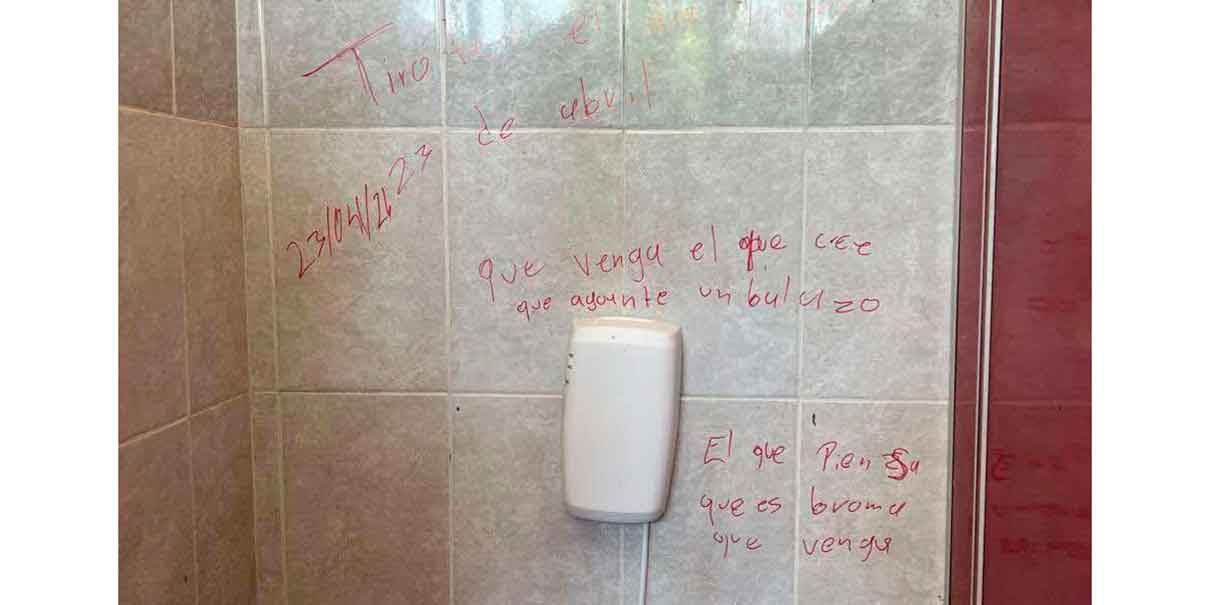 Tiroteo el
23 de abril
23/04/26
que venga el que cree
que aguante un balazo
El que Piensa
que es broma
que venga